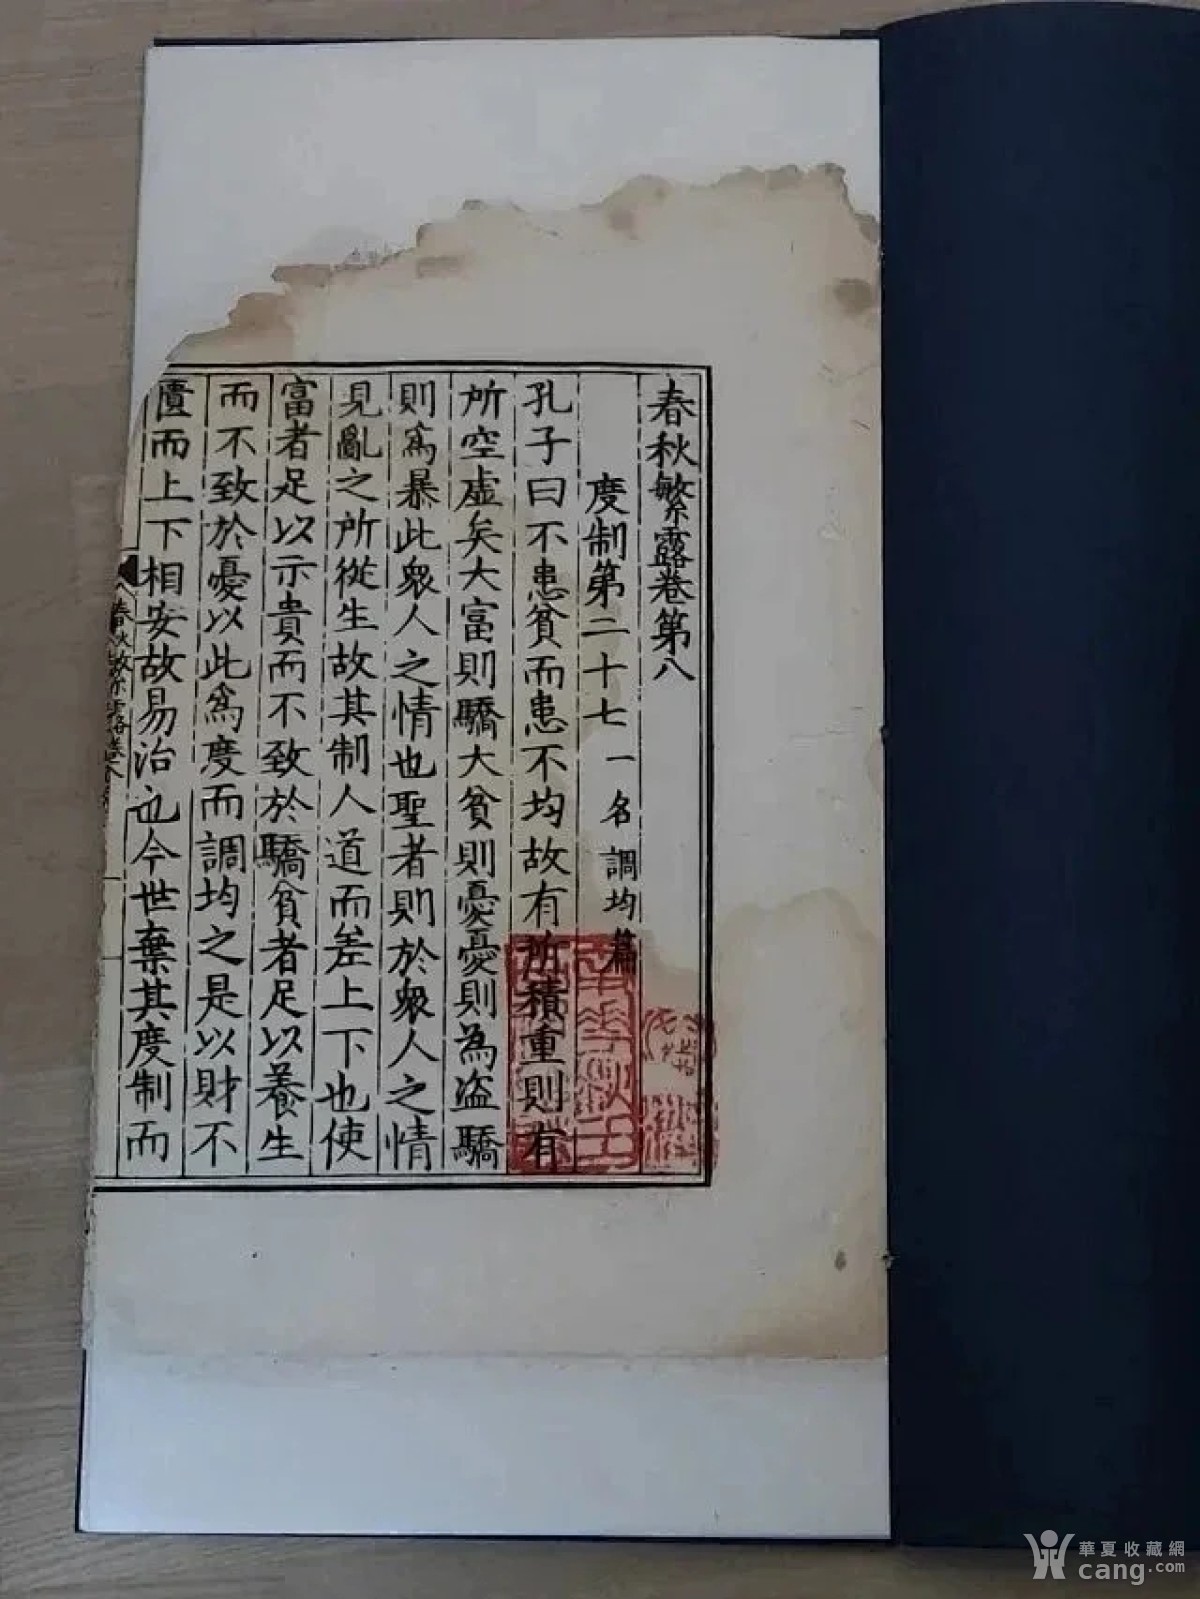 春秋繁露卷第八
度制第二十七一名調均篇
孔子曰不患貧而患不均故有所積重則有
所空虛矣大富則驕大貧則憂憂則為盜驕
則為暴此衆人之情也聖者則於衆人之情
見亂之所從生故其制人道而差上下也使
富者足以示貴而不致於驕貧者足以養生
而不致於憂以此為度而調均之是以財不
匱而上下相安故易治也今世棄其度制而
春秋繁露卷八
華夏收藏網
cang.com